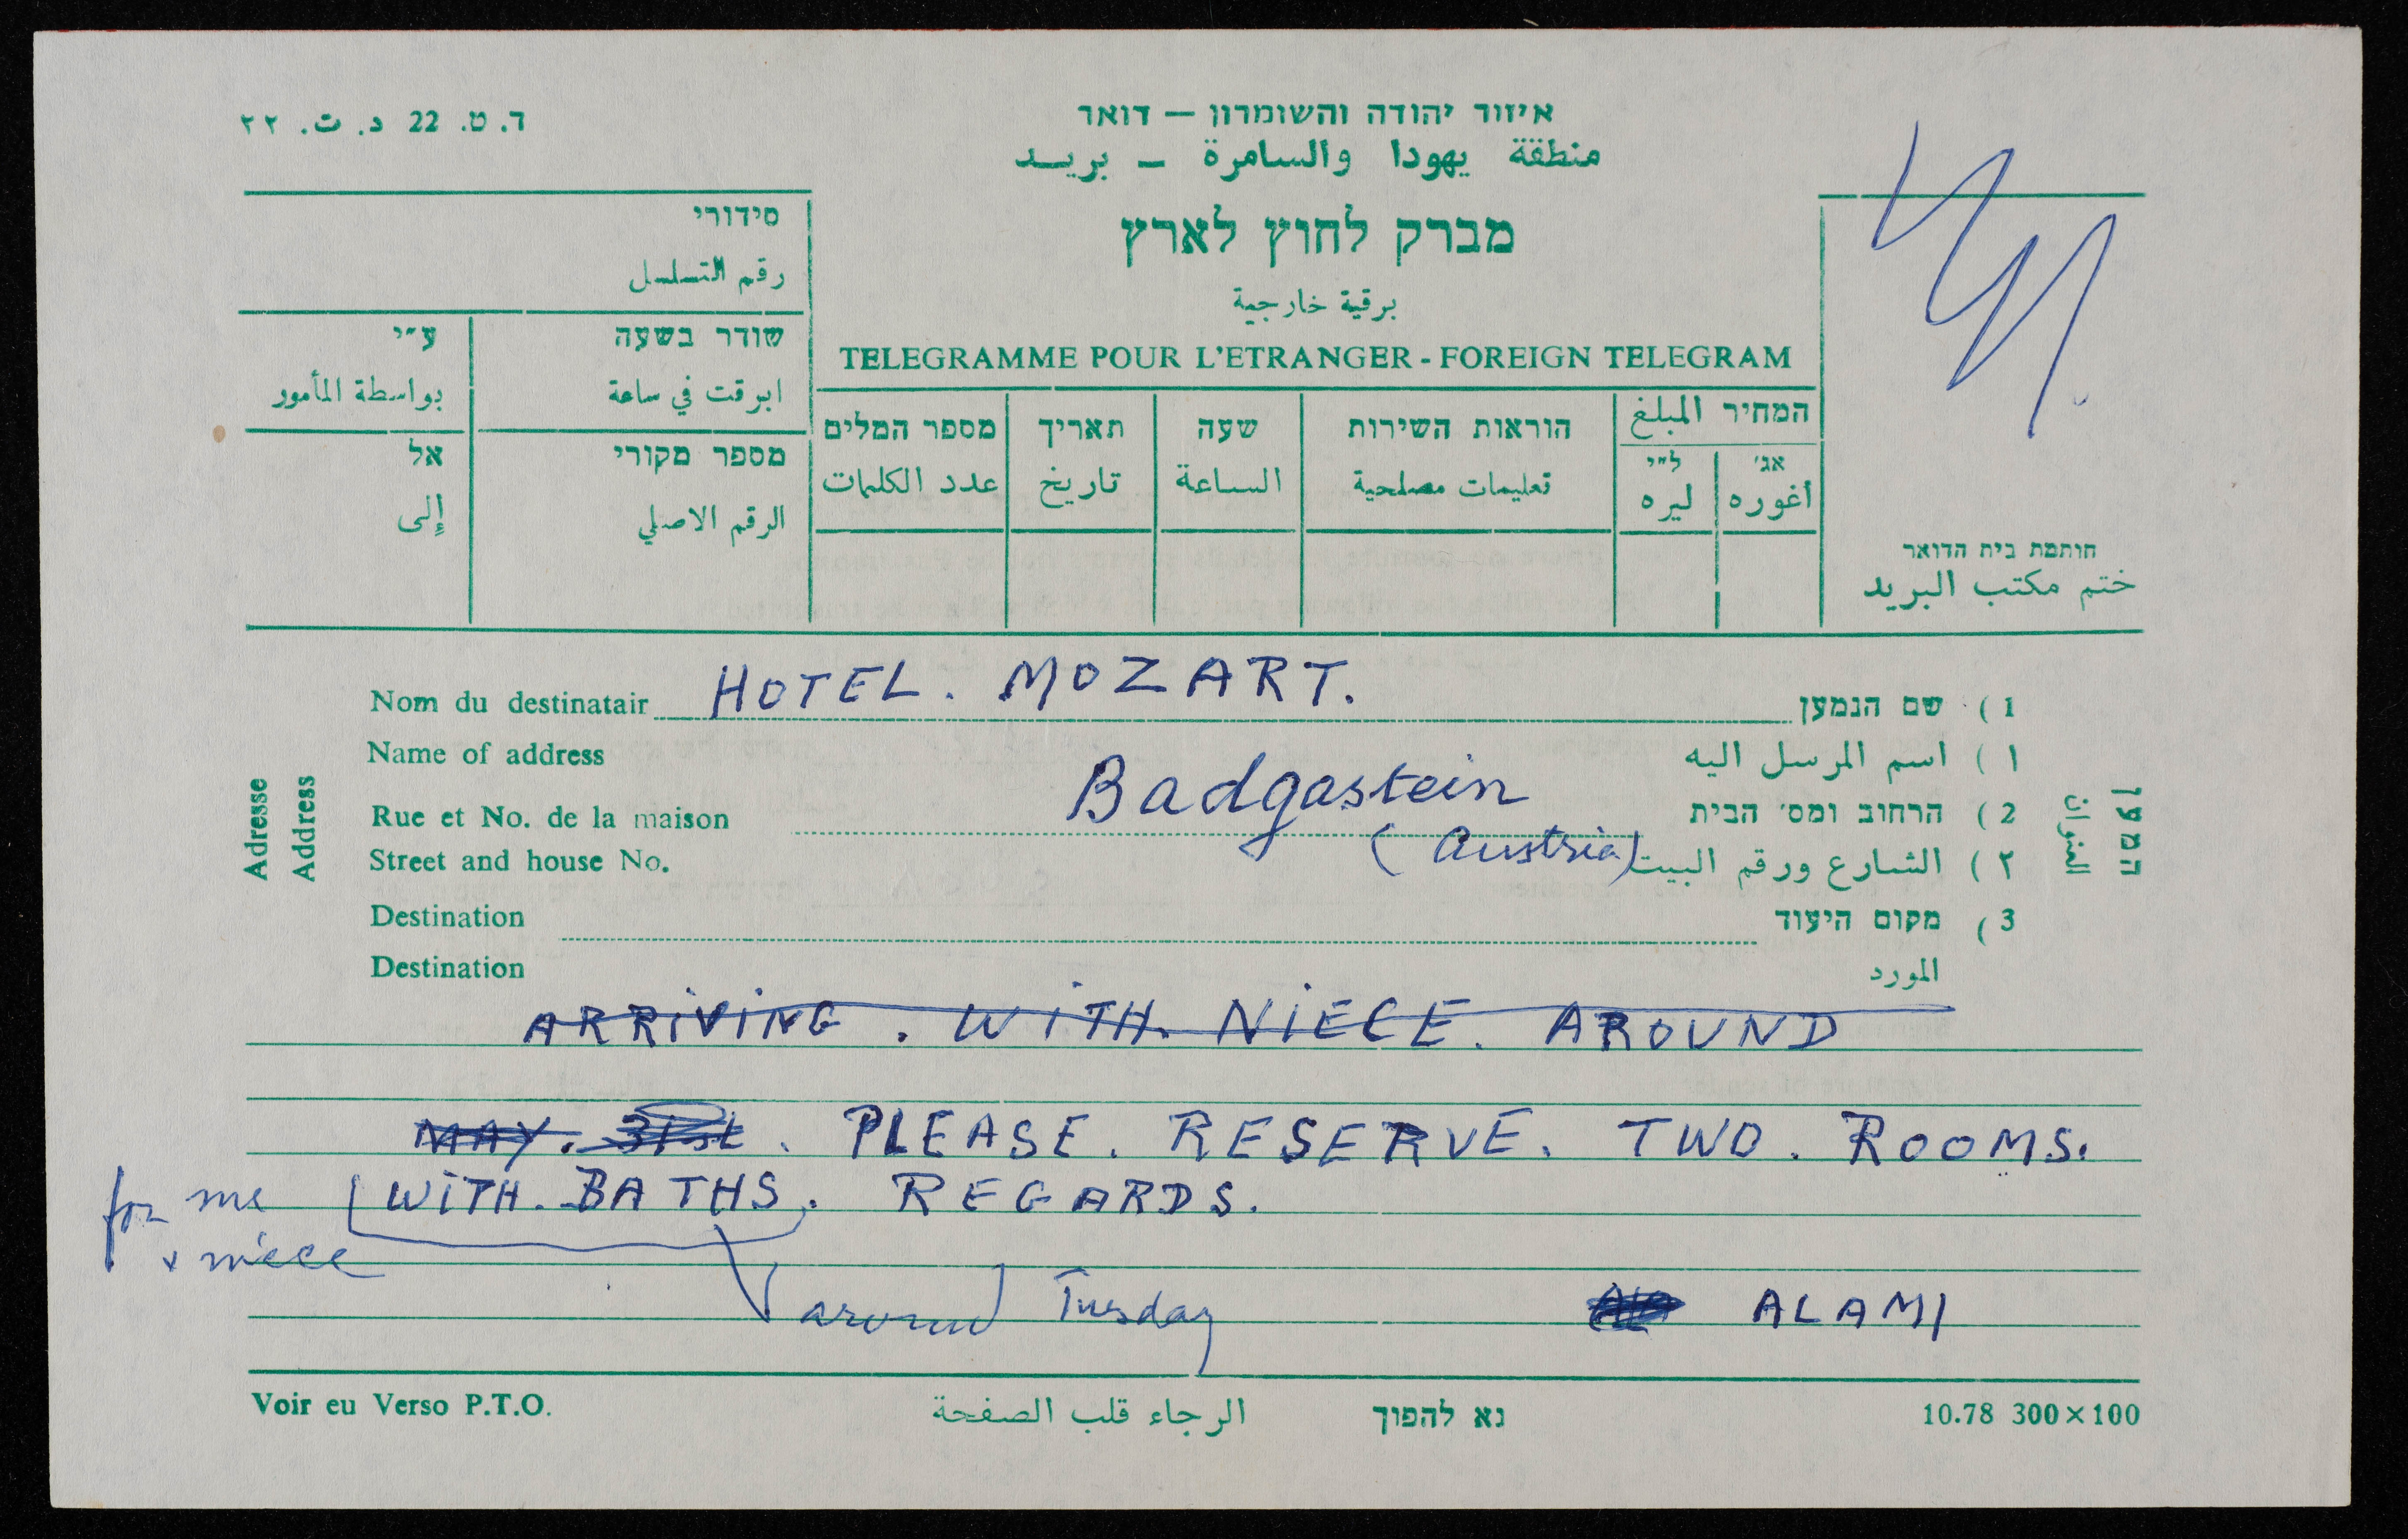 ד. ט. 22 د. ت. ٢٢
איזור יהודה והשומרון — דואר
منطقة يهودا والسامرة — بريد
מברק לחוץ לארץ
برقية خارجية
TELEGRAMME POUR L'ETRANGER - FOREIGN TELEGRAM
סידורי
رقم التسلسل
שודר בשעה
ابرقت في ساعة
ע״י
بواسطة المأمور
מספר מקורי
الرقم الاصلي
אל
إلى
מספר המלים
عدد الكلمات
תאריך
تاريخ
שעה
الساعة
הוראות השירות
تعليمات مصلحية
המחיר المبلغ
ל״י
ليره
אג׳
أغوره
חותמת בית הדואר
ختم مكتب البريد
Adresse
Address
המען
العنوان
Nom du destinatair HOTEL. MOZART. שם הנמען (1
Name of address اسم المرسل اليه (١
Badgastein
Rue et No. de la maison הרחוב ומס׳ הבית (2
(Austria)
Street and house No. الشارع ورقم البيت (٢
Destination מקום היעוד (3
Destination المورد
ARRIVING. WITH. NIECE. AROUND
MAY. 31st. PLEASE. RESERVE. TWO. ROOMS.
for me WITH. BATHS. REGARDS.
+ niece
around Tuesday ALAMI
Voir eu Verso P.T.O. الرجاء قلب الصفحة נא להפוך 10.78 300×100